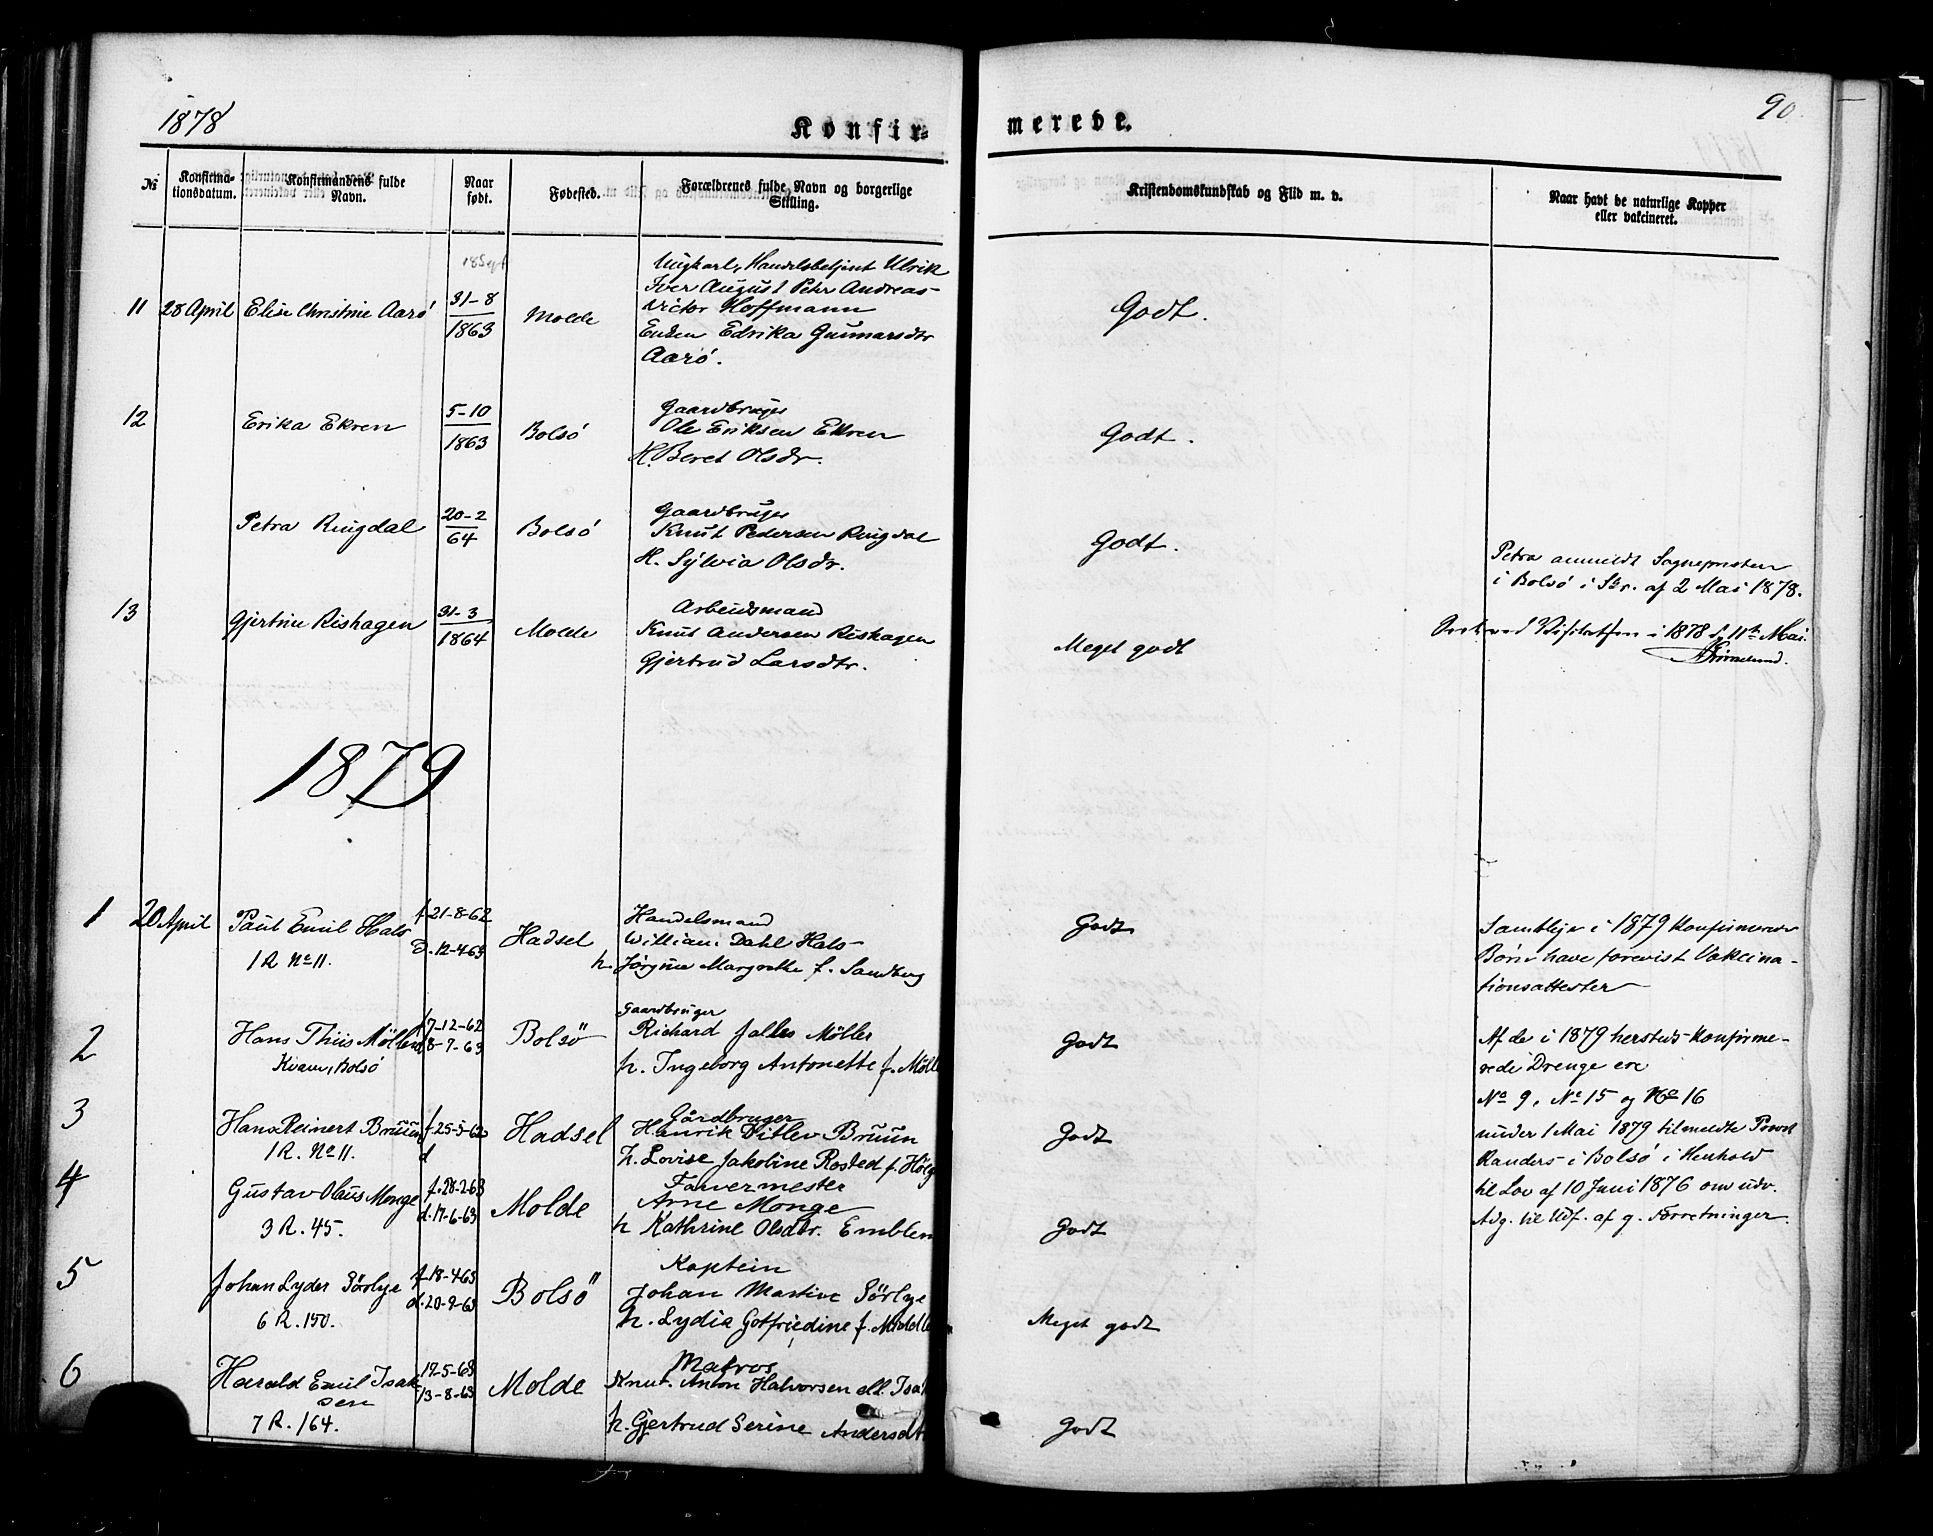 1878
90
Konfir-
merede.
№
Konfirma-
tionsdatum.
Konfirmandens fulde
Navn.
Naar
født.
Fødested.
Forældrenes fulde Navn og borgerlige
Stilling.
Kristendomskundskab og Flid m. v.
Naar havt de naturlige Kopper
eller vakcineret.
11 28 April Elise Christine Aarö
18 Sept
31-8
1863
Molde
Ungkarl, Handelsbetjent Ulrik
Iver August Peter Andreas
Victor Hoffmann
Enken Edrika Gunnarsdtr
Aarö.
Godt.
12 Erika Ekren
5-10
1863
Bolsö
Gaardbruger
Ole Eriksen Ekren
H. Beret Olsdr.
Godt.
Petra Ringdal
20-2
64
Bolsö
Gaardbruger
Knut Pedersen Ringdal
H. Sylvia Olsdr.
Godt.
Petra anmeldt Sognepresten
i Bolsö i Skr. af 2 Mai 1878.
13 Gjertine Rishagen
31-3
1864
Molde
Arbeidsmand
Knut Andersen Rishagen
Gjertrud Larsdtr.
Meget godt
ved Visitatsen i 1878 d. 11te Mai.
1879
1 20 April Paul Emil Hals
1 R No 11.
f. 21-8-62
D. 12-4-63
Hadsel
Handelsmand
William Dahl Hals
h. Jörgine Margrethe f. Sandberg
Godt
Samtlige i 1879 Konfirmerede
Börn have forevist Vakcina-
tionsattester
2 Hans Thiis Möller
Kvam, Bolsö
7-12-62
8-7-63
Bolsö
Gaardbruger
Richard Falles Möller
h. Ingeborg Antonette f. Mölle
Godt
Af de i 1879 hersteds Konfirme-
rede Drenge ere
No 9, No 15 og No 16
3 Hans Reinert Bruun
1 R. No 11.
f. 25-5-62
d
Hadsel
Gårdbruger
Henrik Ditlev Bruun
h. Lovise Jakobine Rosted f. Holg
Godt
under 1 Mai 1879 tilmeldte Provst
Randers i Bolsö i Henhold
til Lov af 10 Juni 1876 om udv.
Adg. til Udf. af g. Forretninger.
4 Gustav Olaus Monge
3 R. 45.
f. 28-2-63
d. 17-6-63
Molde
Farvermester
Arne Monge
h Kathrine Olsdtr. Emblem
Godt
5 Johan Lyder Sörlye
6 R. 150.
f. 18-4-63
d. 20-9-63
Bolsö
Kaptein
Johan Martin Sörlye
h. Lydia Gotfriedine f.
Meget godt
6 Harald Emil Isak-
sen
7 R. 164.
19-5-63
13-8-63
Molde
Matros
Knut Anton Halvorsen ell. Isa
h. Gjertrud Serine Andersdt
Godt